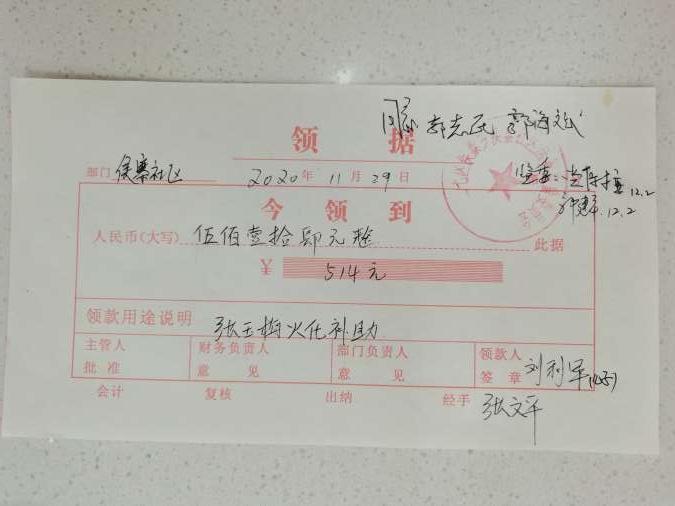 同意 郭志民 郭海斌
领 据
部门 侯寨社区 2020年11月29日
12.2
12.2
今领到
人民币(大写) 伍佰壹拾肆元整 此据
¥ 514元
领款用途说明 张玉梅火化补助
主管人 批准 财务负责人 意见 部门负责人 意见 领款人 签章 刘利军
会计 复核 出纳 经手 张文平